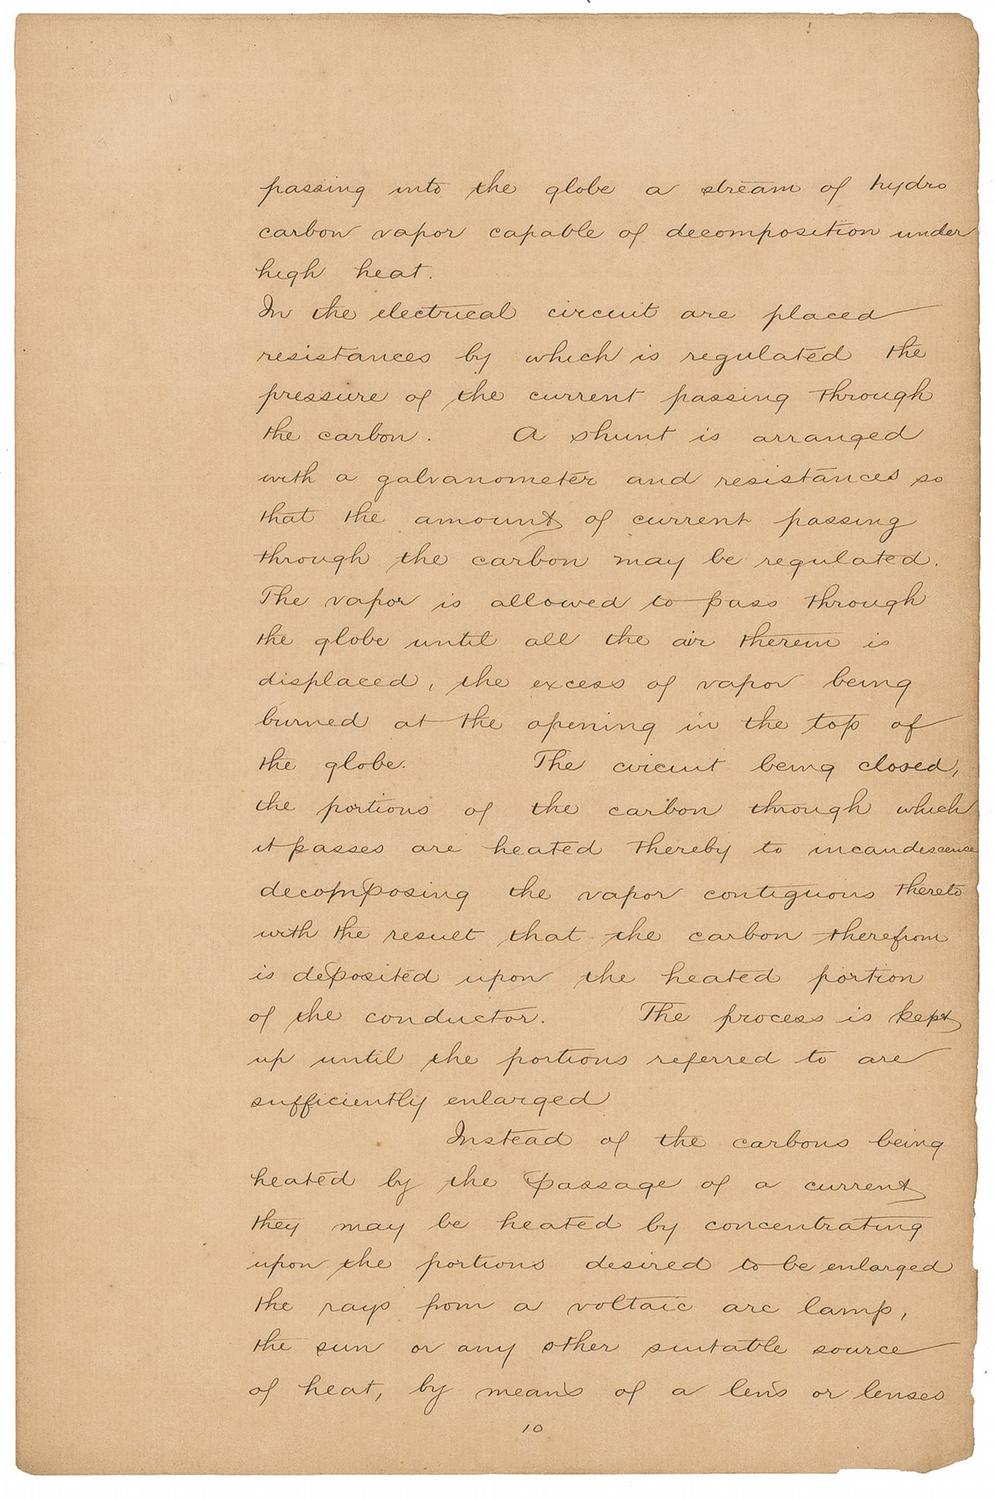 passing into the globe a stream of hydro
carbon vapor capable of decomposition under
high heat.
In the electrical circuit are placed
resistances by which is regulated the
pressure of the current passing through
the carbon. A shunt is arranged
with a galvanometer and resistances so
that the amount of current passing
through the carbon may be regulated.
The vapor is allowed to pass through
the globe until all the air therein is
displaced, the excess of vapor being
burned at the opening in the top of
the globe. The circuit being closed,
the portions of the carbon through which
it passes are heated thereby to incandescence
decomposing the vapor contiguous thereto
with the result that the carbon therefrom
is deposited upon the heated portion
of the conductor. The process is kept
up until the portions referred to are
sufficiently enlarged
Instead of the carbons being
heated by the passage of a current
they may be heated by concentrating
upon the portions desired to be enlarged
the rays from a voltaic arc lamp,
the sun or any other suitable source
of heat, by means of a lens or lenses
10